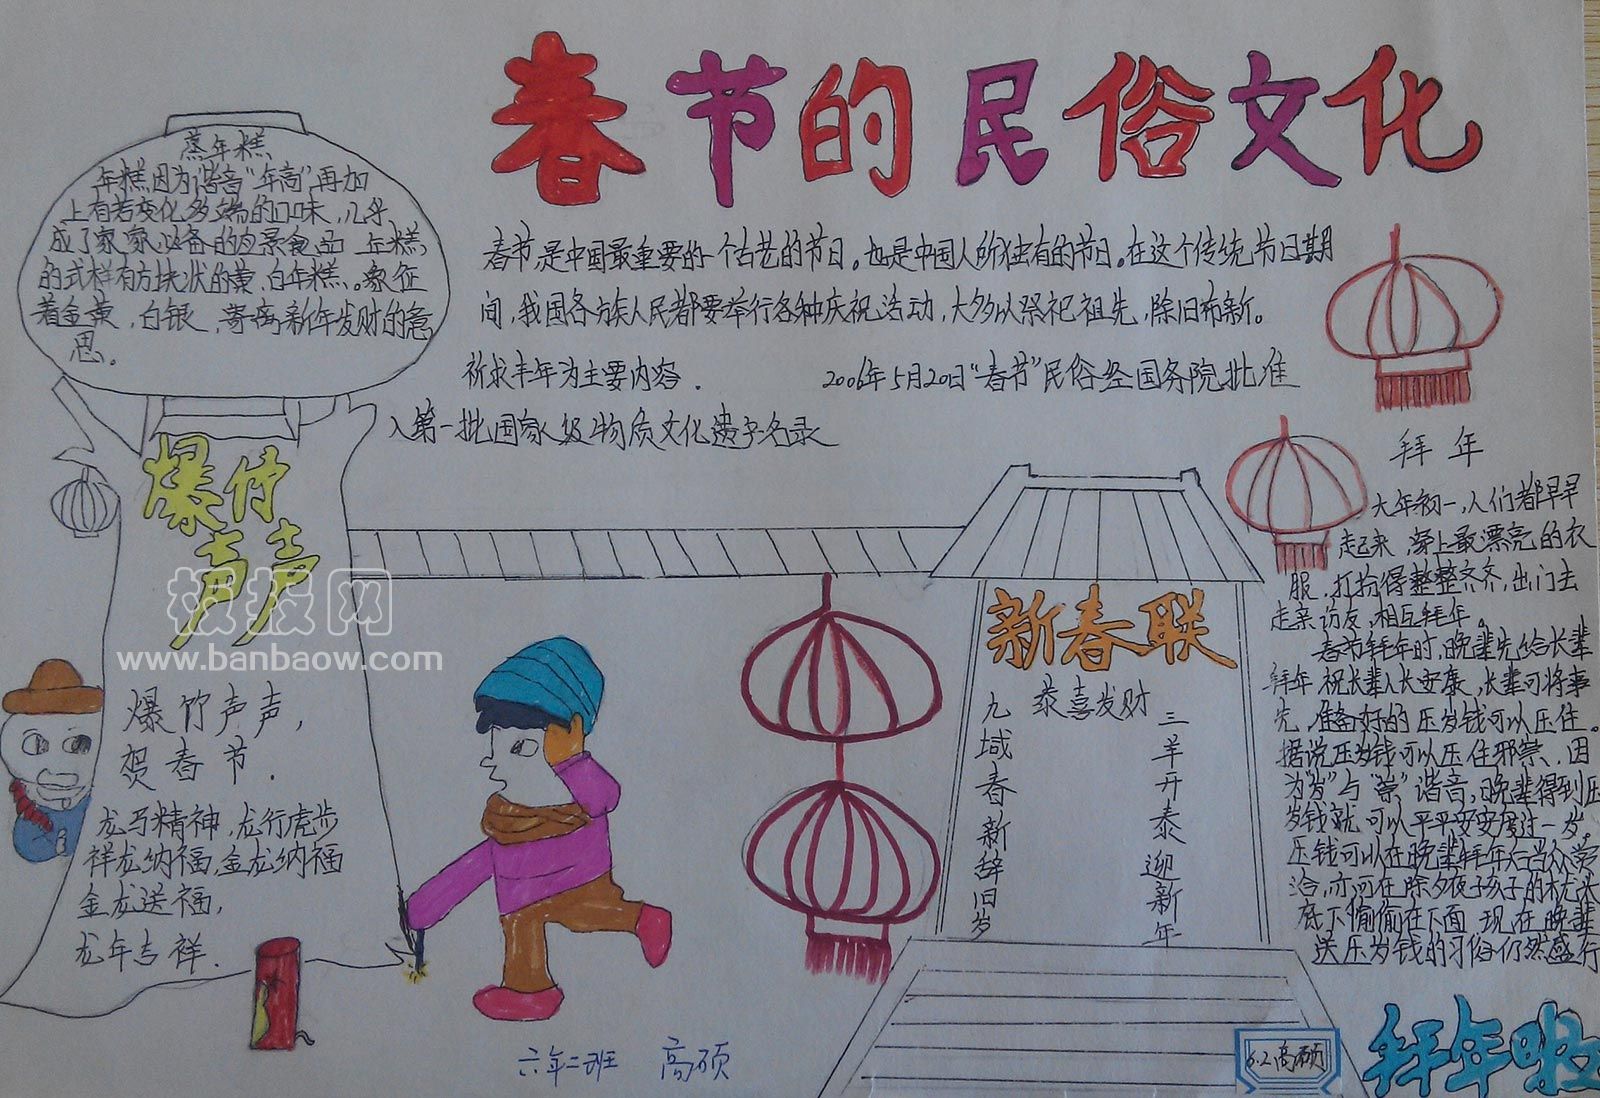 春节的民俗文化
春节是中国最重要的一个古老的节日。也是中国人所独有的节日。在这个传统节日期
间,我国各族人民都要举行各种庆祝活动,大多以祭祀祖先,除旧布新。
祈求丰年为主要内容. 2006年5月20日"春节"民俗经国务院批准
入第一批国家级物质文化遗产名录
蒸年糕
年糕因为谐音"年高"再加
上有若变化多端的口味,几乎
成了家家必备的 景食品 年糕
的式样有方块状的黄,白年糕。象征
着金黄,白银,寄寓新年发财的意
思。
爆竹
声声
板报网
www.banbaow.com
爆竹声声,
贺春节.
龙马精神,龙行虎步
祥龙纳福,金龙纳福
金龙送福,
龙年吉祥.
新春联
恭喜发财
三羊开泰迎新年
九域春新辞旧岁
拜年
大年初一,人们都早早
起来,穿上最漂亮的衣
服,打扮得整整齐齐,出门去
走亲访友,相互拜年。
春节拜年时,晚辈先给长辈
拜年,祝长辈人长安康,长辈可将事
先,准备好的压岁钱可以压住。
据说压岁钱可以压住邪祟,因
为"岁"与"祟"谐音,晚辈得到压
岁钱就可以平平安安度过一岁。
压钱可以在晚辈拜年后当众赏
给,亦可在除夕夜子孩子的枕头
底下偷偷在下面 现在晚辈
送压岁钱的习俗仍然盛行
拜年啦
六年二班 高硕
6.2高硕